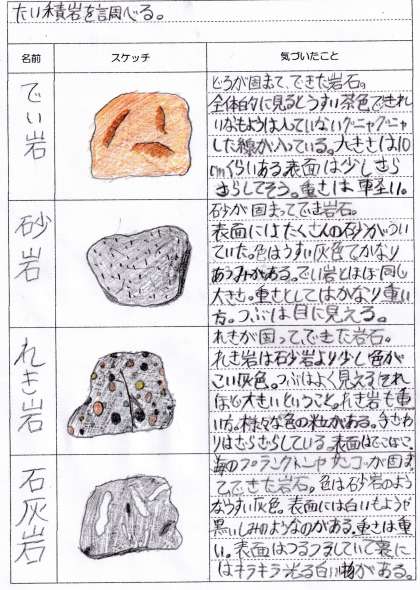 たい積岩を調べる。
名前 スケッチ 気づいたこと
でい岩
どろが固まって、できた岩石。
全体的に見るとうすい茶色できれ
いなもようは入っていない。グニャグニャ
した線が入っている。大きさは10
cmくらいある。表面は少しさら
さらしてそう。重さは軽い。
砂岩
砂が固まってでき岩石。
表面にはたくさんの砂がつい
ていた。色はうすい灰色でかなり
あつみがある。でい岩とほぼ同じ
大きさ。重さとしてはかなり重い
方。つぶは目に見える。
れき岩
れきが固って、できた岩石。
れき岩は石砂岩より少し色が
こい灰色。つぶはよく見える。それ
ほど大きいということ。れき岩も重い
方。様々な色の粒がある。手ざわ
りはさらさらしている。表面はでこぼこ
石灰岩
海のプランクトンやサンゴが固ま
てできた岩石。色は石砂岩のよう
なうすい灰色。表面には白いもようや
黒いしみのようなのがある。重さは重
い。表面はつるつるしていて裏に
はキラキラ光る白い物がある。